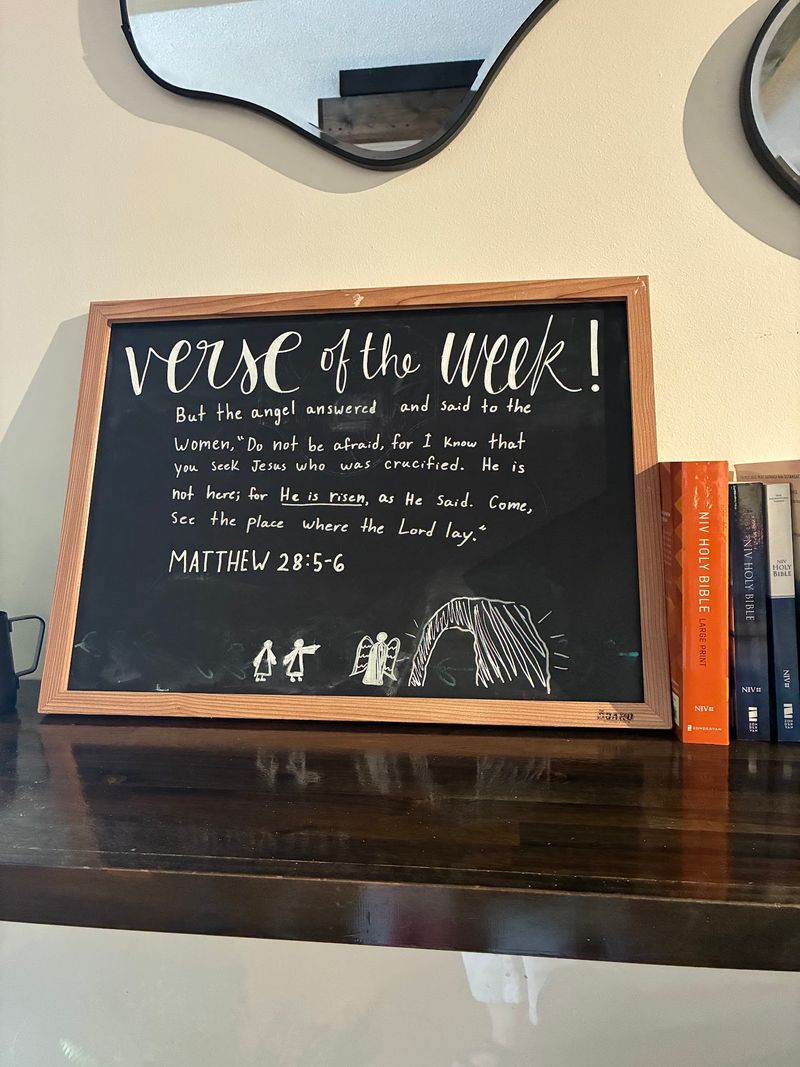 verse of the week!
But the angel answered and said to the
women, "Do not be afraid, for I know that
you seek Jesus who was crucified. He is
not here; for He is risen, as He said. Come,
see the place where the Lord lay."
MATTHEW 28:5-6
NIV HOLY BIBLE LARGE PRINT
NIV
ZONDERVAN
NIV HOLY BIBLE
NIV
HOLY
BIBLE
NIV